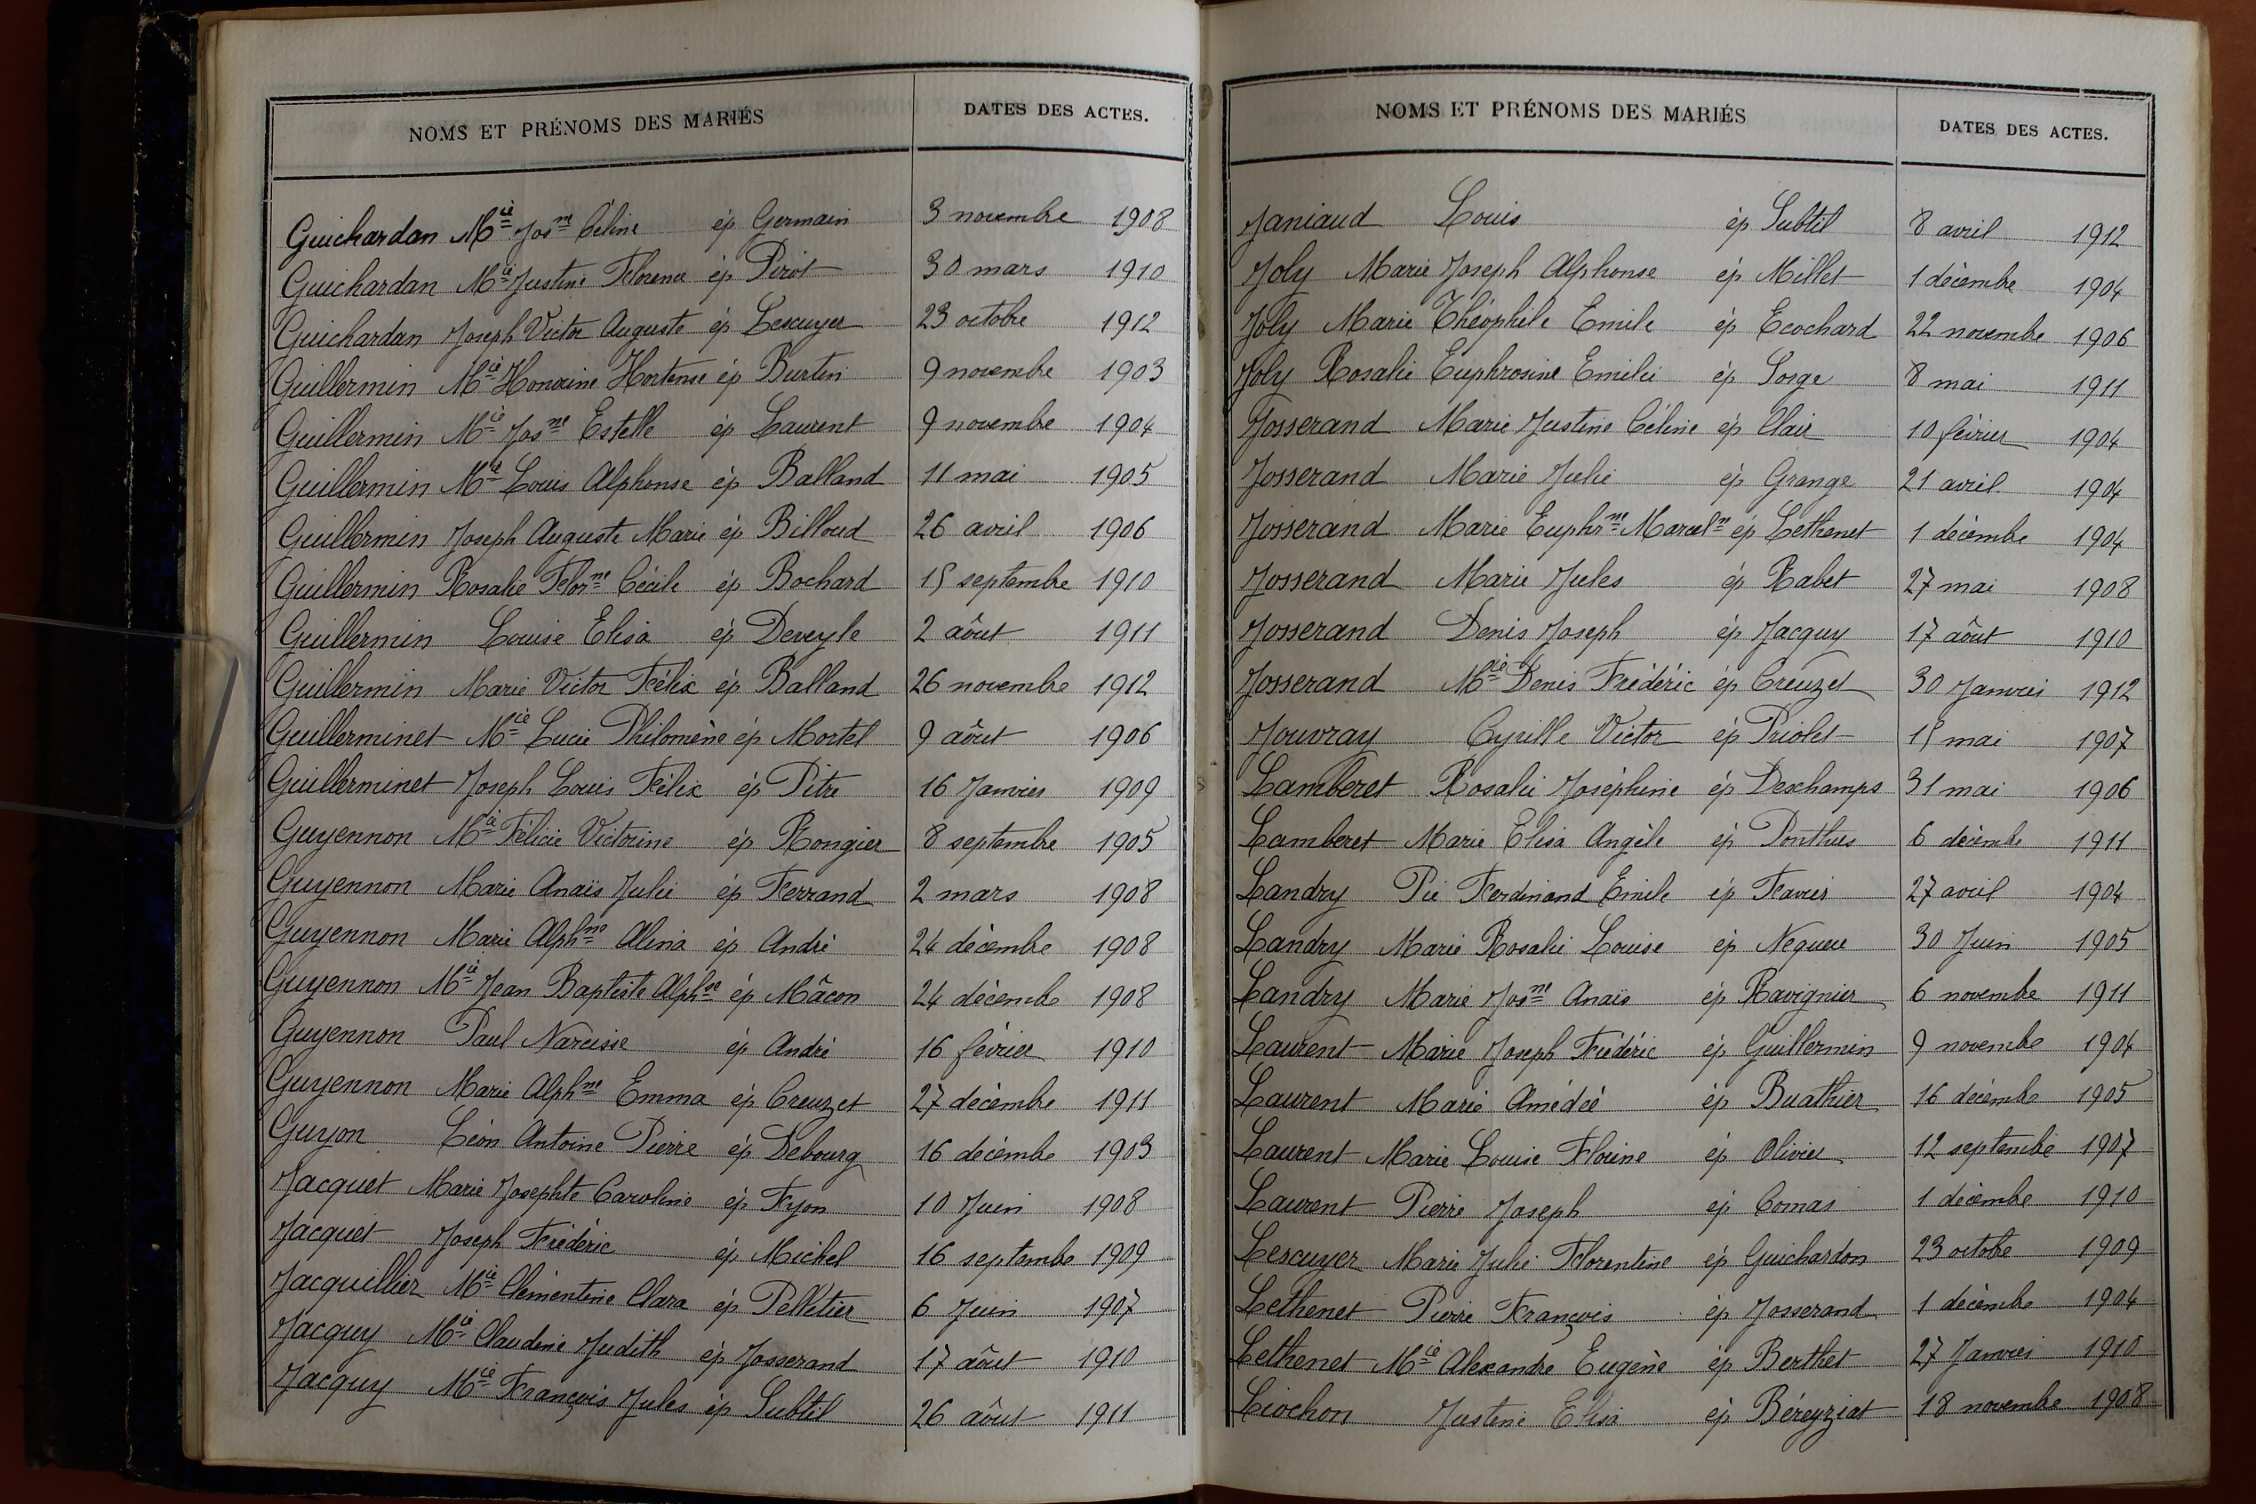 NOMS ET PRÉNOMS DES MARIÉS DATES DES ACTES.
Guichardan Mie Josne Céline ép Germain 3 novembre 1908
Guichardan Mie Justine Florence ép Pirot 30 mars 1910
Guichardan Joseph Victor Auguste ép Lescuyer 23 octobre 1912
Guillermin Mie Honorine Hortense ép Burtin 9 novembre 1903
Guillermin Mie Josne Estelle ép Laurent 9 novembre 1904
Guillermin Mie Louis Alphonse ép Balland 11 mai 1905
Guillermin Joseph Auguste Marie ép Billoud 26 avril 1906
Guillermin Rosalie Florne Cécile ép Bochard 15 septembre 1910
Guillermin Louise Elisa ép Deveyle 2 aôut 1911
Guillermin Marie Victor Félix ép Balland 26 novembre 1912
Guillerminet Mie Lucie Philomène ép Mortel 9 aôut 1906
Guillerminet Joseph Louis Félix ép Pitre 16 Janvier 1909
Guyennon Mie Félicie Victorine ép Rongier 8 septembre 1905
Guyennon Marie Anaïs Julie ép Ferrand 2 mars 1908
Guyennon Marie Alphne Alina ép André 24 décembre 1908
Guyennon Mie Jean Baptiste Alphse ép Mâcon 24 décembre 1908
Guyennon Paul Narcisse ép André 16 février 1910
Guyennon Marie Alphne Emma ép Creuzet 27 décembre 1911
Guyon Léon Antoine Pierre ép Debourg 16 décembre 1903
Jacquet Marie Josephte Caroline ép Fyon 10 Juin 1908
Jacquet Joseph Frédéric ép Michel 16 septembre 1909
Jacquillier Mie Clémentine Clara ép Pelletier 6 Juin 1907
Jacquy Mie Claudine Judith ép Josserand 17 aôut 1910
Jacquy Mie François Jules ép Subtil 26 aôut 1911
NOMS ET PRÉNOMS DES MARIÉS DATES DES ACTES.
Janiaud Louis ép Subtil 8 avril 1912
Joly Marie Joseph Alphonse ép Millet 1 décembre 1904
Joly Marie Théophile Emile ép Ecochard 22 novembre 1906
Joly Rosalie Euphrosine Emilie ép Sorge 8 mai 1911
Josserand Marie Justine Céline ép Clair 10 février 1904
Josserand Marie Julie ép Grange 21 avril 1904
Josserand Marie Euphrne Marceln ép Lethenet 1 décembre 1904
Josserand Marie Jules ép Rabet 27 mai 1908
Josserand Denis Joseph ép Jacquy 17 aôut 1910
Josserand Mie Denis Frédéric ép Creuzet 30 Janvier 1912
Jouvray Cyrille Victor ép Priolet 15 mai 1907
Lamberet Rosalie Joséphine ép Deschamps 31 mai 1906
Lamberet Marie Elisa Angèle ép Ponthus 6 décembre 1911
Landry Pie Ferdinand Emile ép Favier 27 avril 1904
Landry Marie Rosalie Louise ép Nequeu 30 Juin 1905
Landry Marie Josne Anaïs ép Ravignier 6 novembre 1911
Laurent Marie Joseph Frédéric ép Guillermin 9 novembre 1904
Laurent Marie Amédée ép Buathier 16 décembre 1905
Laurent Marie Louise Florine ép Olivier 12 septembre 1907
Laurent Pierre Joseph ép Comas 1 décembre 1910
Lescuyer Marie Julie Florentine ép Guichardon 23 octobre 1909
Lethenet Pierre François ép Josserand 1 décembre 1904
Lethenet Mie Alexandre Eugène ép Berthet 27 Janvier 1910
Liochon Justine Elisa ép Béreyziat 18 novembre 1908